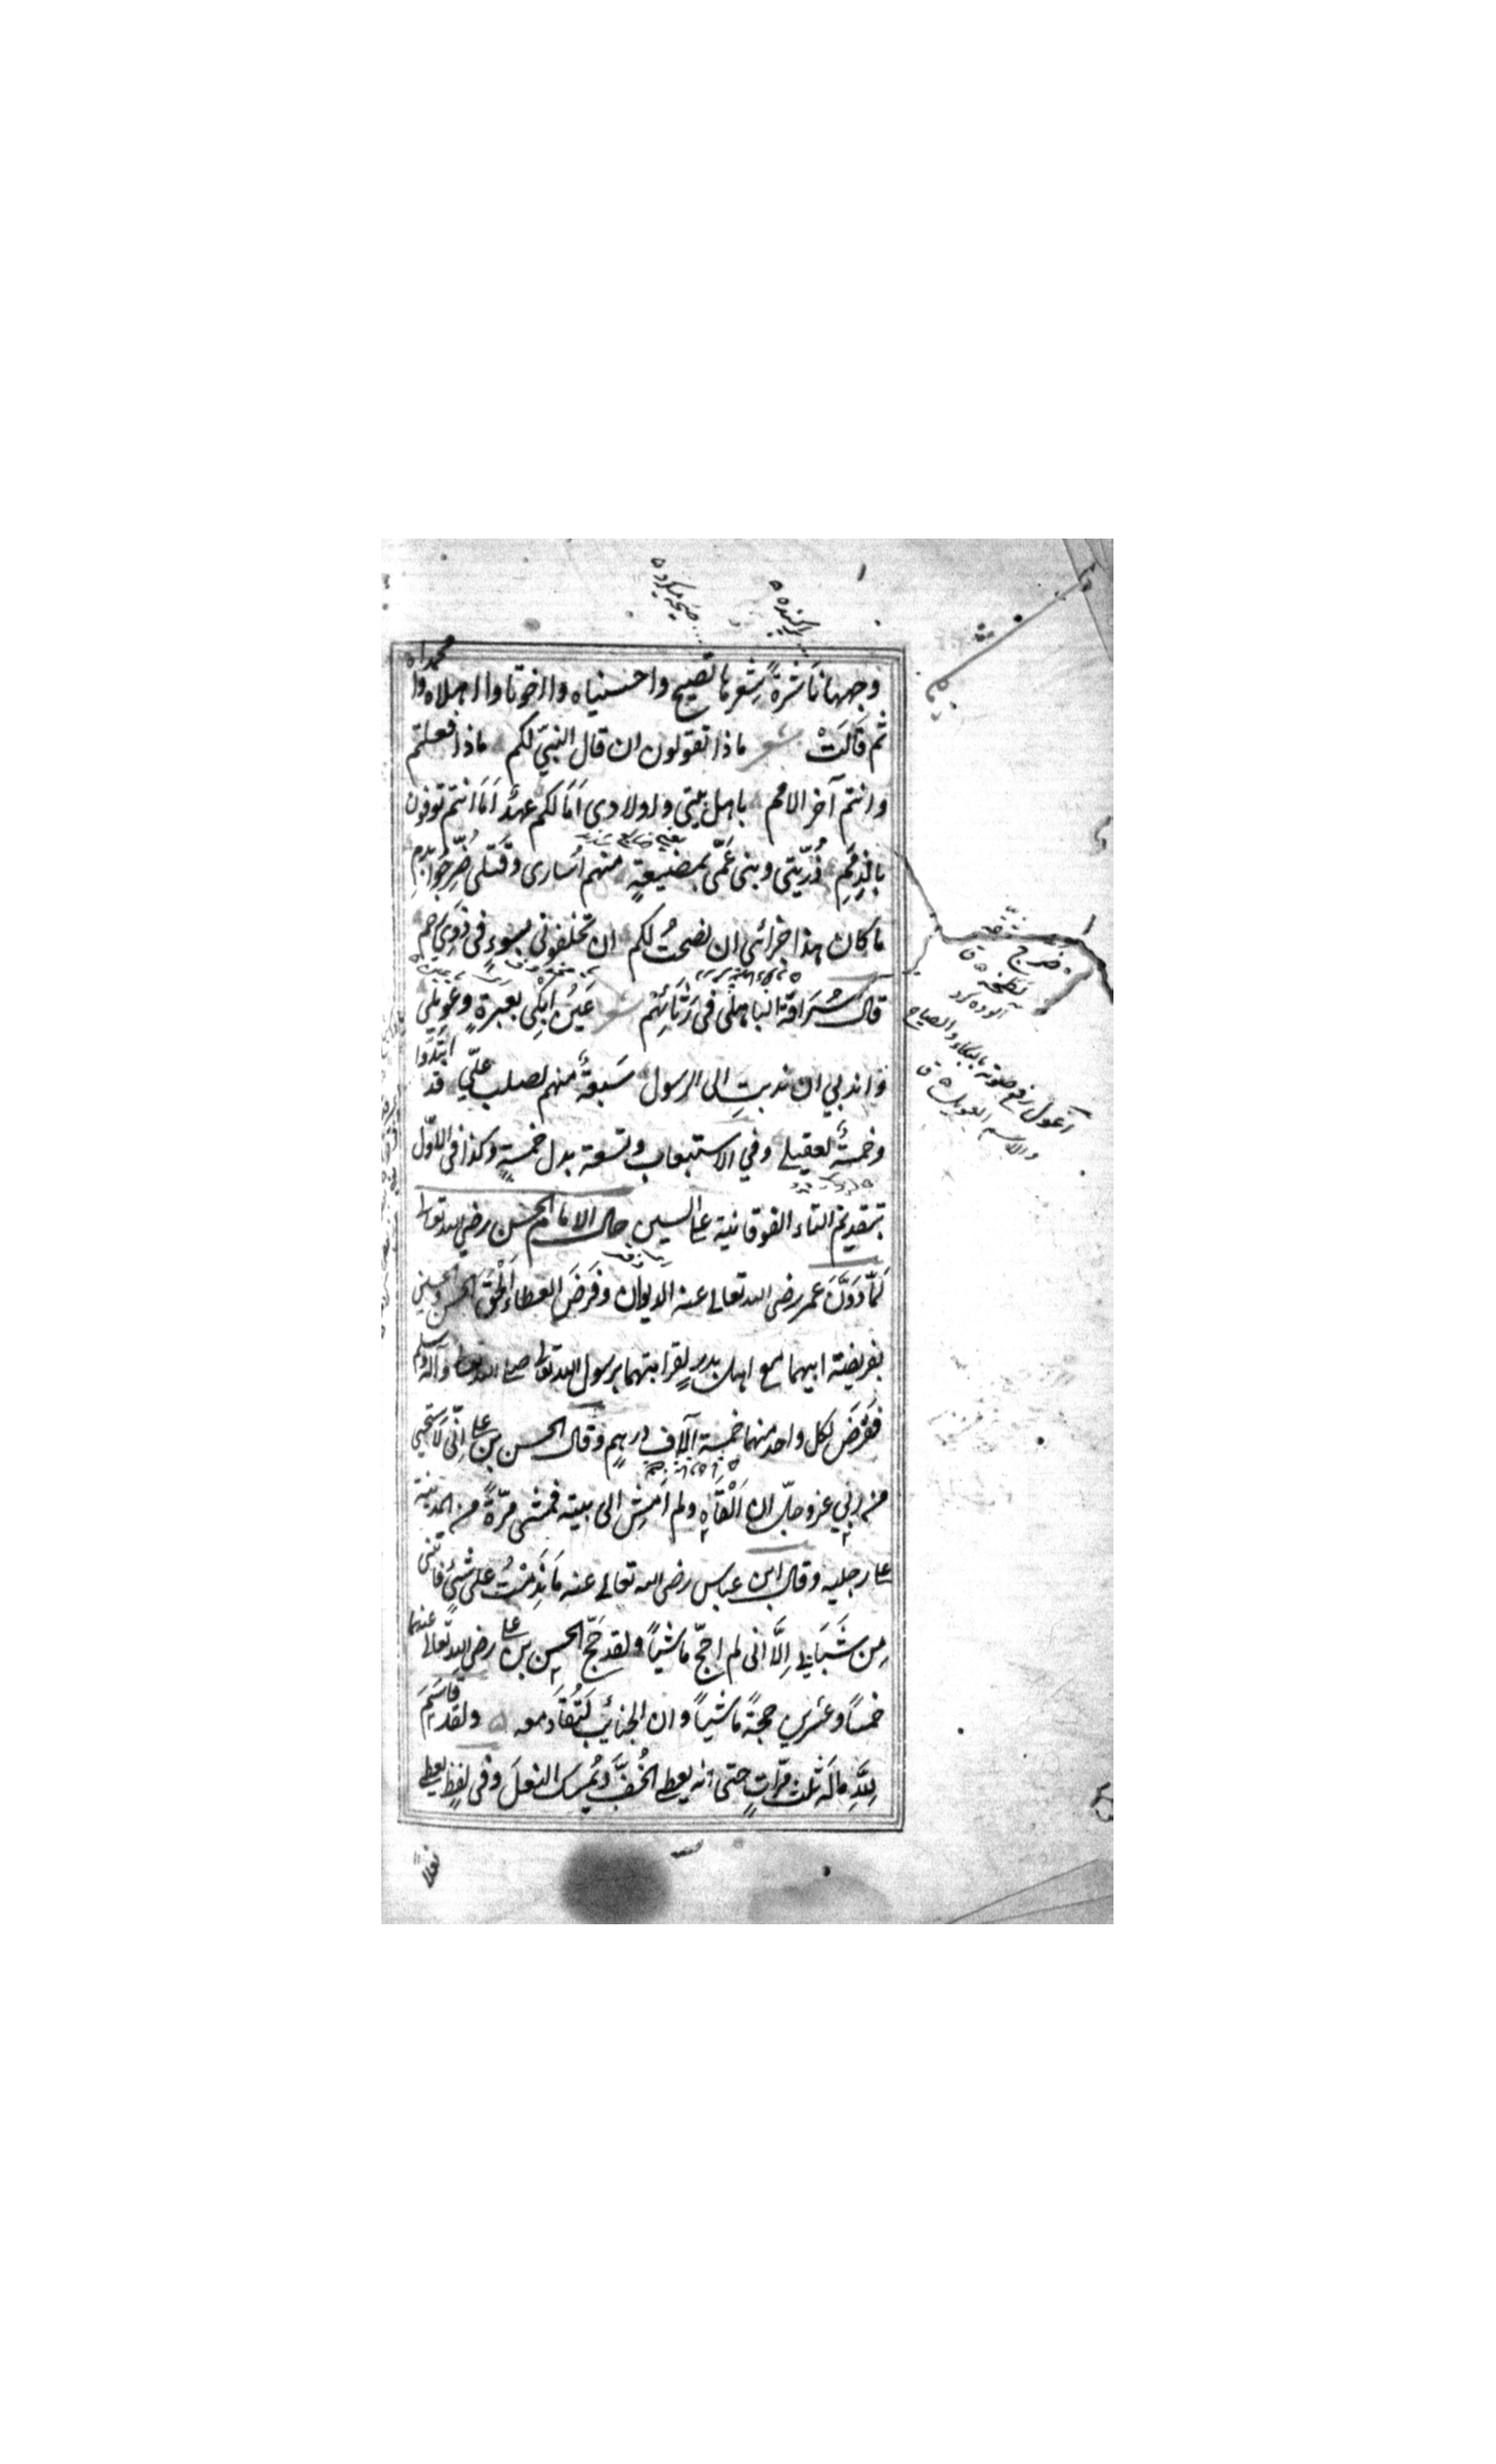 وجهها نَاشرةً شعرها تصيح وا حسنياه وا اخوتا وا اهلاه وا محمداه
ثم قَالَتْ شعر ماذا تقولون ان قال النبيّ لكم ماذا فعلتم
وانتم آخر الامم باهل بيتى واولادى اَمَا لكم عهدٌ اَمَا انتم توفون
بالذممِ ذُرّيتى وبنى عَمّى بمضيعةٍ منهم اُسارى وقَتلى ضُرِّجُوا بدمِ
ما كان هذا جزائى ان نصحتُ لكم ان تخلفونى بسوءٍ فى ذَوِى رَحم
قال سُرَاقة الباهلى فى رَثَائِهْم شعر عَينُ ابكِى بعبرةٍ وعَوِيلى
واندبي ان ندبتِ الى الرسول سَبعةٌ منهم لصلب عليّ قد اُبِيدُوا
وخمسةٌ لعقيلے وفي الاستيعاب وتسعة بدل خمسةٍ وكذا فى الاوّل
بتقديم التاء الفوقانية على السين حال الامام الحسن رضى الله تعالى
لمّا دَوَّنَ عمر رضى الله تعالى عنه الديوان وفَرَضَ العطاءَ اَلْحَقَ الحسن والحسين
بفريضة ابيهما مع اهل بدرٍ لقرابتهما برسول الله تعالى صلى الله تعالى وآله وسلم
فَفَرَضَ لكل واحد منهما خمسة آلاف درهمٍ وقال الحسن بن على اِنّى لَاَستحيى
من ربي عز وجلّ ان اَلْقَاه ولم اَمشِ الى بيته فمشى مَرّةً من المدينة
على رجليه وقال ابن عباس رضى الله تعالى عنه مَا نَدِمْتُ على شئٍ فاتنى
مِن شَبَابِى اِلَّا انى لم احجّ ماشياً ولقد حَجّ الحسن بن على رضى الله تعالى عنهما
خمسًا وعشرين حجةً ماشياً وان الجنائبَ لَتُقَادمعه ولقد قاسَمَ
لِلَّهِ مالَه ثلث مَرّاتٍ حتى انه يعطى الخُفَّ ويُمسك النعلَ وفى لفظٍ يعطى
نعلاً
ضرج
لطخه ق
آلوده كرد
اَعْوَل رفع صوته بالبكاء والصياح
والاسم العويل ق